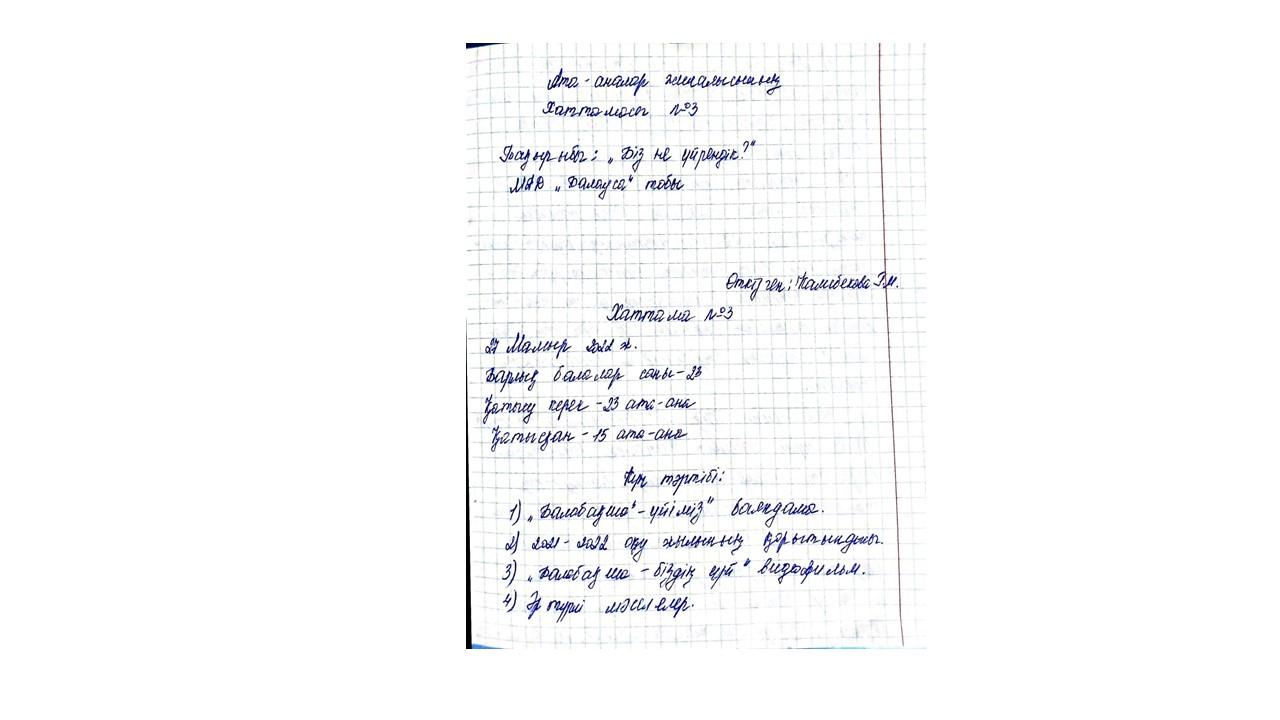 Ата-аналар жиналысының
Хаттамасы №3
Тақырыбы: „Біз не үйрендік?"
МАД „Балауса" тобы
Өткізген: Г.М.
Хаттама №3
27 Мамыр 2022 ж.
Барлық балалар саны-23
Қатысу керек -23 ата-ана
Қатысқан - 15 ата-ана
Күн тәртібі:
1) „Балабақша - үйіміз" баяндама.
2) 2021-2022 оқу жылының қорытындысы.
3) „Балабақша - біздің үй" видеофильм.
4) Әр түрлі мәселелер.